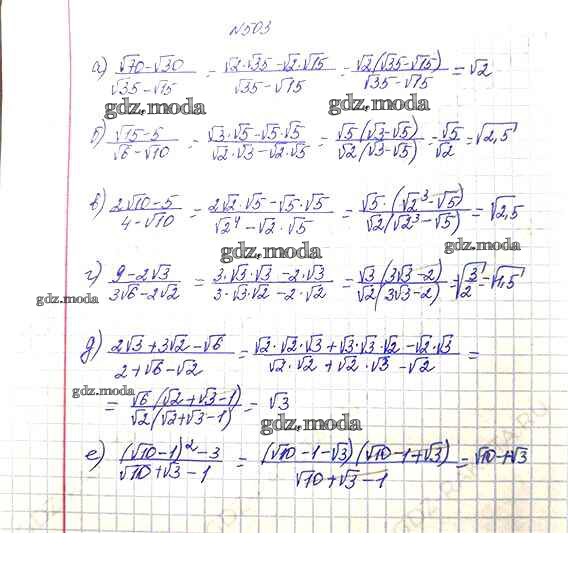 №503
а) (√70-√30)/(√35-√15) = (√2·√35-√2·√15)/(√35-√15) = √2(√35-√15)/(√35-√15) = √2
gdz.moda gdz.moda
б) (√15-5)/(√6-√10) = (√3·√5-√5·√5)/(√2·√3-√2·√5) = √5(√3-√5)/√2(√3-√5) = √5/√2 = √2,5
в) (2√10-5)/(4-√10) = (2√2·√5-√5·√5)/(√2⁴-√2·√5) = √5·(√2³-√5)/√2(√2³-√5) = √2,5
gdz.moda
г) (9-2√3)/(3√6-2√2) = (3·√3·√3-2·√3)/(3·√3·√2-2·√2) = √3(3√3-2)/√2(3√3-2) = √3/2 = √1,5
gdz.moda gdz.moda
д) (2√3+3√2-√6)/(2+√6-√2) = (√2·√2·√3+√3·√3·√2-√2·√3)/(√2·√2+√2·√3-√2) =
gdz.moda
= √6(√2+√3-1)/√2(√2+√3-1) = √3
gdz.moda
е) ((√10-1)²-3)/(√10+√3-1) = (√10-1-√3)(√10-1+√3)/(√10+√3-1) = √10-1-√3